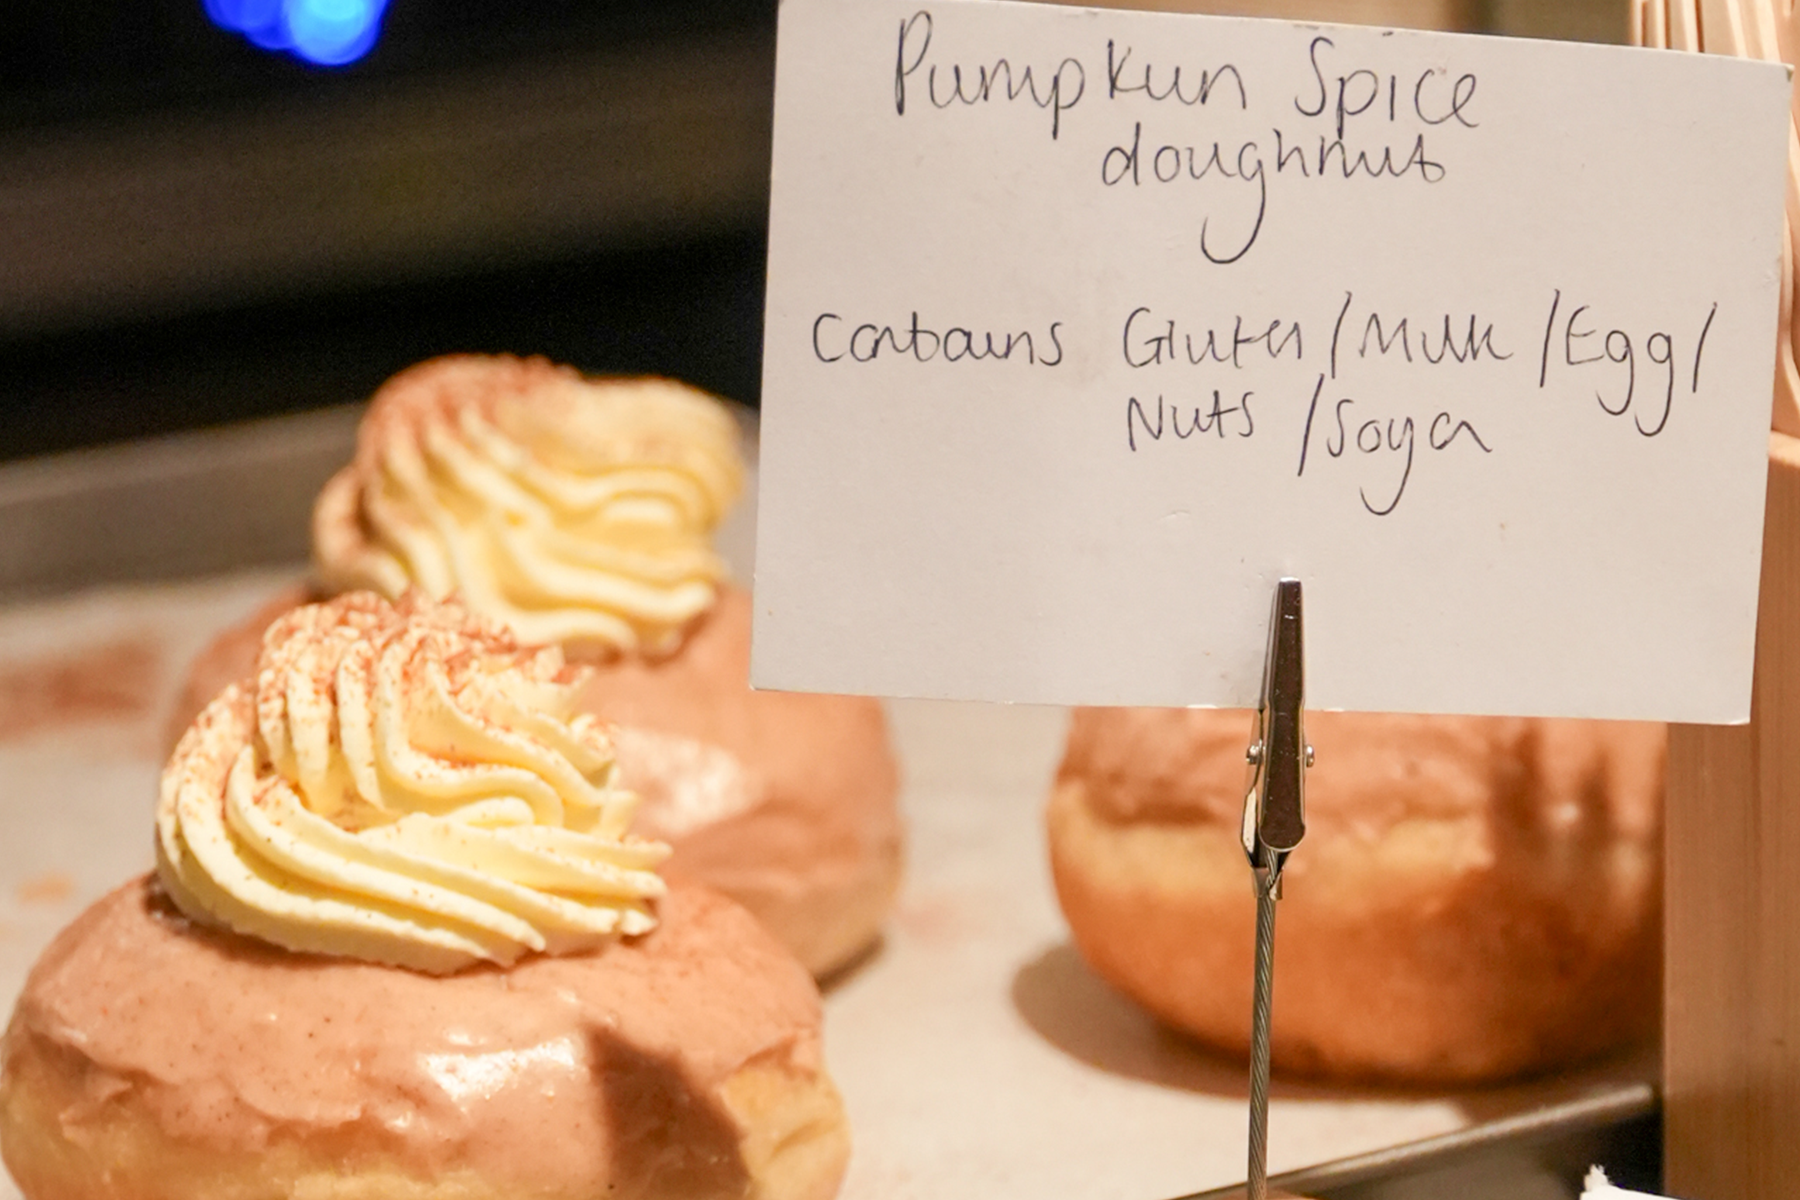 Pumpkin Spice
doughnut
Contains Gluten/Milk/Egg/
Nuts/Soya